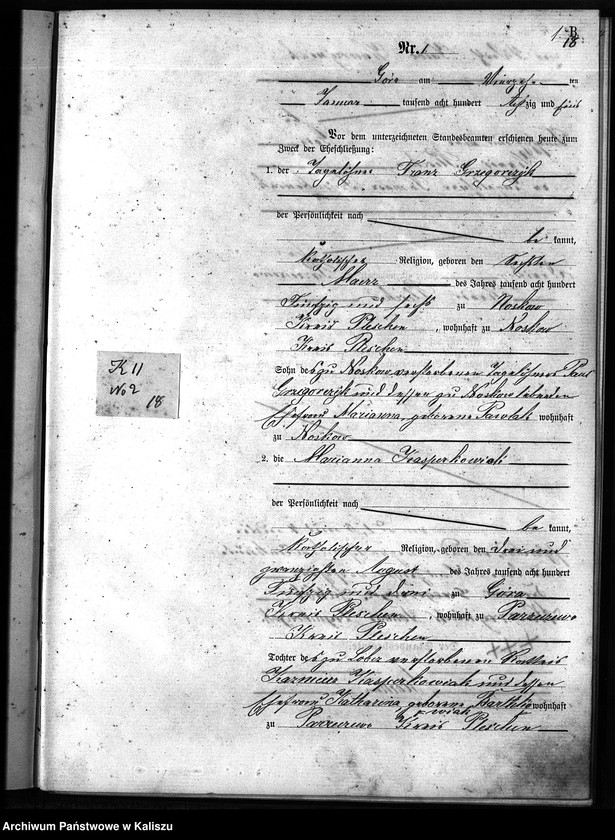 1 B
18
Nr. 1
Góra am Vierzehn ten
Januar tausend acht hundert achtzig und fünf
Vor dem unterzeichneten Standesbeamten erschienen heute zum
Zweck der Eheschließung:
1. der Tagelöhner Franz Grzegorczyk
der Persönlichkeit nach
be kannt,
Katholischer Religion, geboren den Sechsten
Maerz des Jahres tausend acht hundert
Fünfzig und sechs zu Noskow
Kreis Pleschen, wohnhaft zu Noskow
Kreis Pleschen
Sohn des zu Noskow verstorbenen Tagelöhners Paul
Grzegorczyk und dessen zu Noskow lebenden
Ehefrau Marianna, geborene Pawlak wohnhaft
zu Noskow
2. die Marianna Kasperkowiak
der Persönlichkeit nach
be kannt,
Katholischer Religion, geboren den drei und
zwanzigsten August des Jahres tausend acht hundert
Fünfzig und drei zu Góra
Kreis Pleschen, wohnhaft zu
Kreis Pleschen
Tochter des zu verstorbenen
Kazmier Kasperkowiak und dessen
Ehefrau Katharina, geborene wohnhaft
zu Kreis Pleschen
K 11
No 2
18
Archiwum Państwowe w Kaliszu